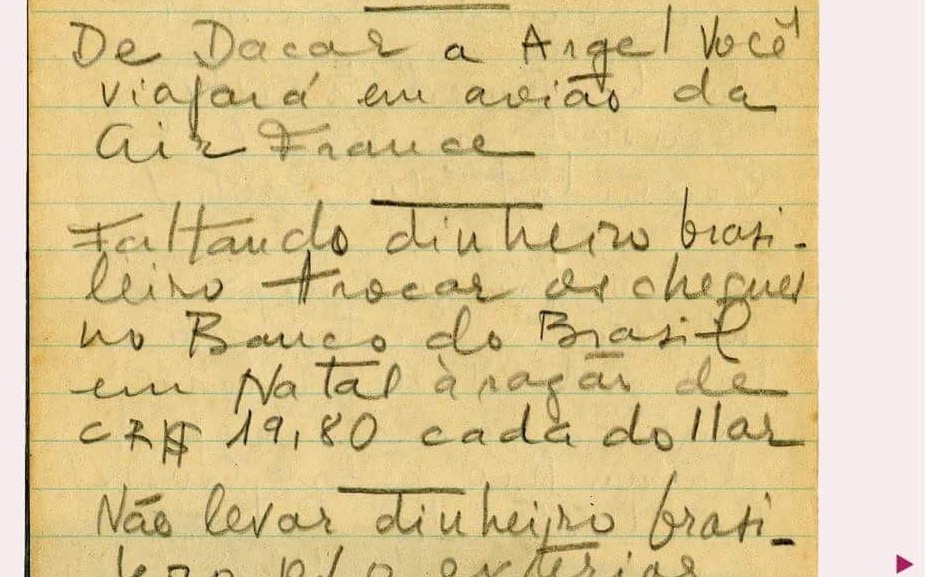 De Dacar a Argel você
viajará em avião da
Air France
Faltando dinheiro brasi-
leiro trocar os cheques
no Banco do Brasil
em Natal à razão de
CR$ 19,80 cada dollar
Não levar dinheiro brasi-
lero p/ o exterior